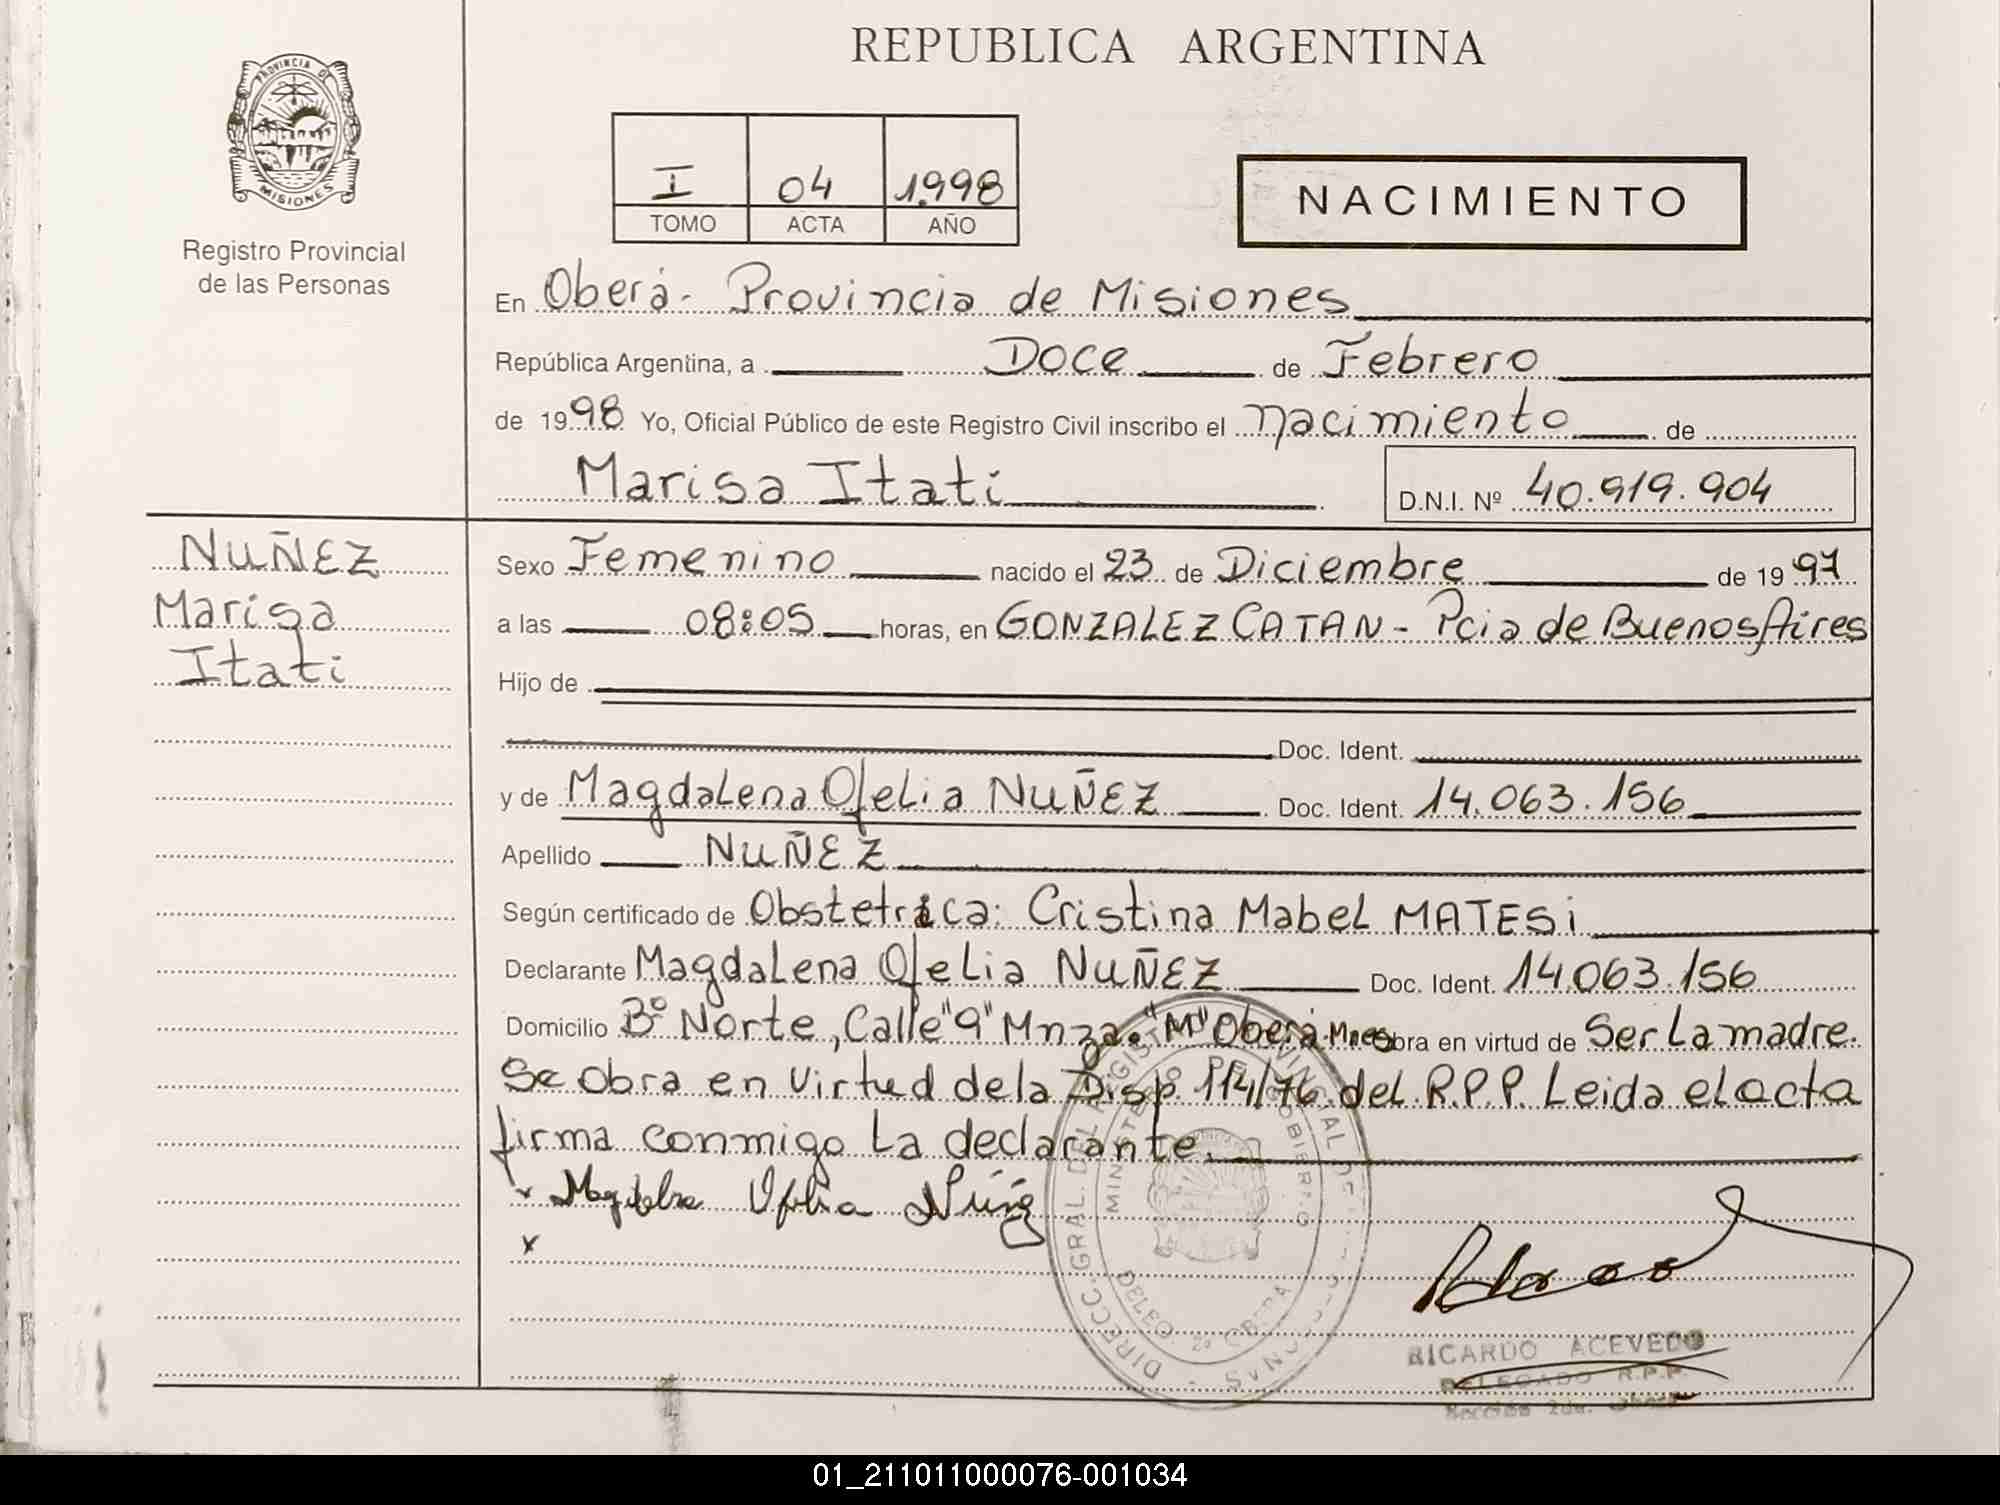 REPUBLICA ARGENTINA
PROVINCIA DE
MISIONES
Registro Provincial
de las Personas
I 04 1.998
TOMO ACTA AÑO
NACIMIENTO
En Oberá - Provincia de Misiones
República Argentina, a Doce de Febrero
de 1998 Yo, Oficial Público de este Registro Civil inscribo el nacimiento de
Marisa Itati D.N.I. Nº 40.919.904
NUÑEZ
Marisa
Itati
Sexo Femenino nacido el 23 de Diciembre de 1997
a las 08:05 horas, en GONZALEZ CATAN - Pcia de Buenos Aires
Hijo de
Doc. Ident.
y de Magdalena Ofelia NUÑEZ Doc. Ident. 14.063.156
Apellido NUÑEZ
Según certificado de Obstetrica: Cristina Mabel MATESi
Declarante Magdalena Ofelia NUÑEZ Doc. Ident. 14.063.156
Domicilio Bº Norte, Calle "9" Mnza. "M" Oberá Mnes obra en virtud de Ser La madre.
Se obra en virtud de la Disp. 114/76 del R.P.P. Leida el acta
firma conmigo La declarante.
x Magdalena Ofelia Núñez
x
DIRECC. GRAL. DEL REGISTRO PROVINCIAL DE LAS PERSONAS
MINISTERIO DE GOBIERNO
DELEG. 2º OBERA
RICARDO ACEVEDO
DELEGADO R.P.P.
Sección 2da. Oberá
01_211011000076-001034